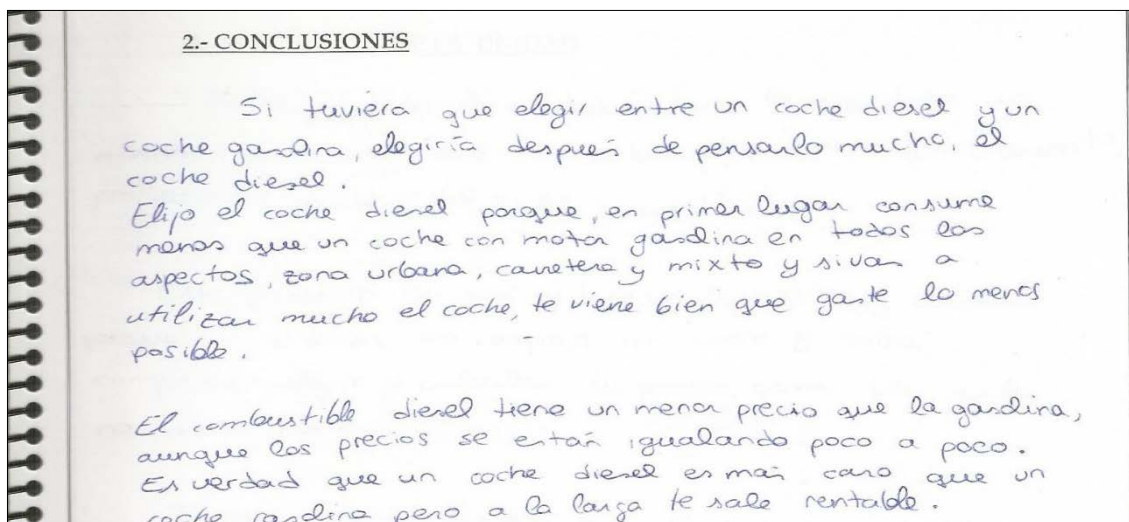 2.- CONCLUSIONES
Si tuviera que elegir entre un coche diesel y un
coche gasolina, elegiría después de pensarlo mucho, el
coche diesel.
Elijo el coche diesel porque, en primer lugar consume
menos que un coche con motor gasolina en todos los
aspectos, zona urbana, carretera y mixto y si vas a
utilizar mucho el coche, te viene bien que gaste lo menos
posible.
El combustible diesel tiene un menor precio que la gasolina,
aunque los precios se están igualando poco a poco.
Es verdad que un coche diesel es más caro que un
coche gasolina pero a la larga te sale rentable.